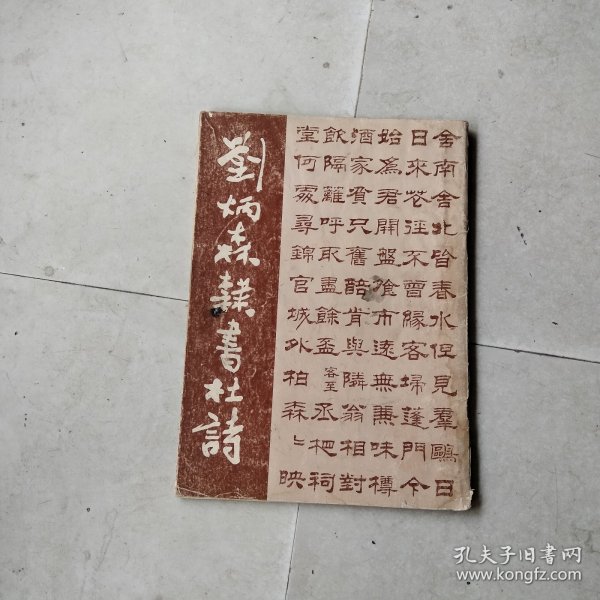 劉炳森隸書杜詩
舍南舍北皆春水但見羣鷗日
日來花徑不曾緣客埽蓬門今
始為君開盤飧市遠無兼味樽
酒家貧只舊醅肯與隣翁相對
飲隔籬呼取盡餘盃客至丞相祠
堂何處尋錦官城外柏森〻映
孔夫子旧书网
www.kongfz.com